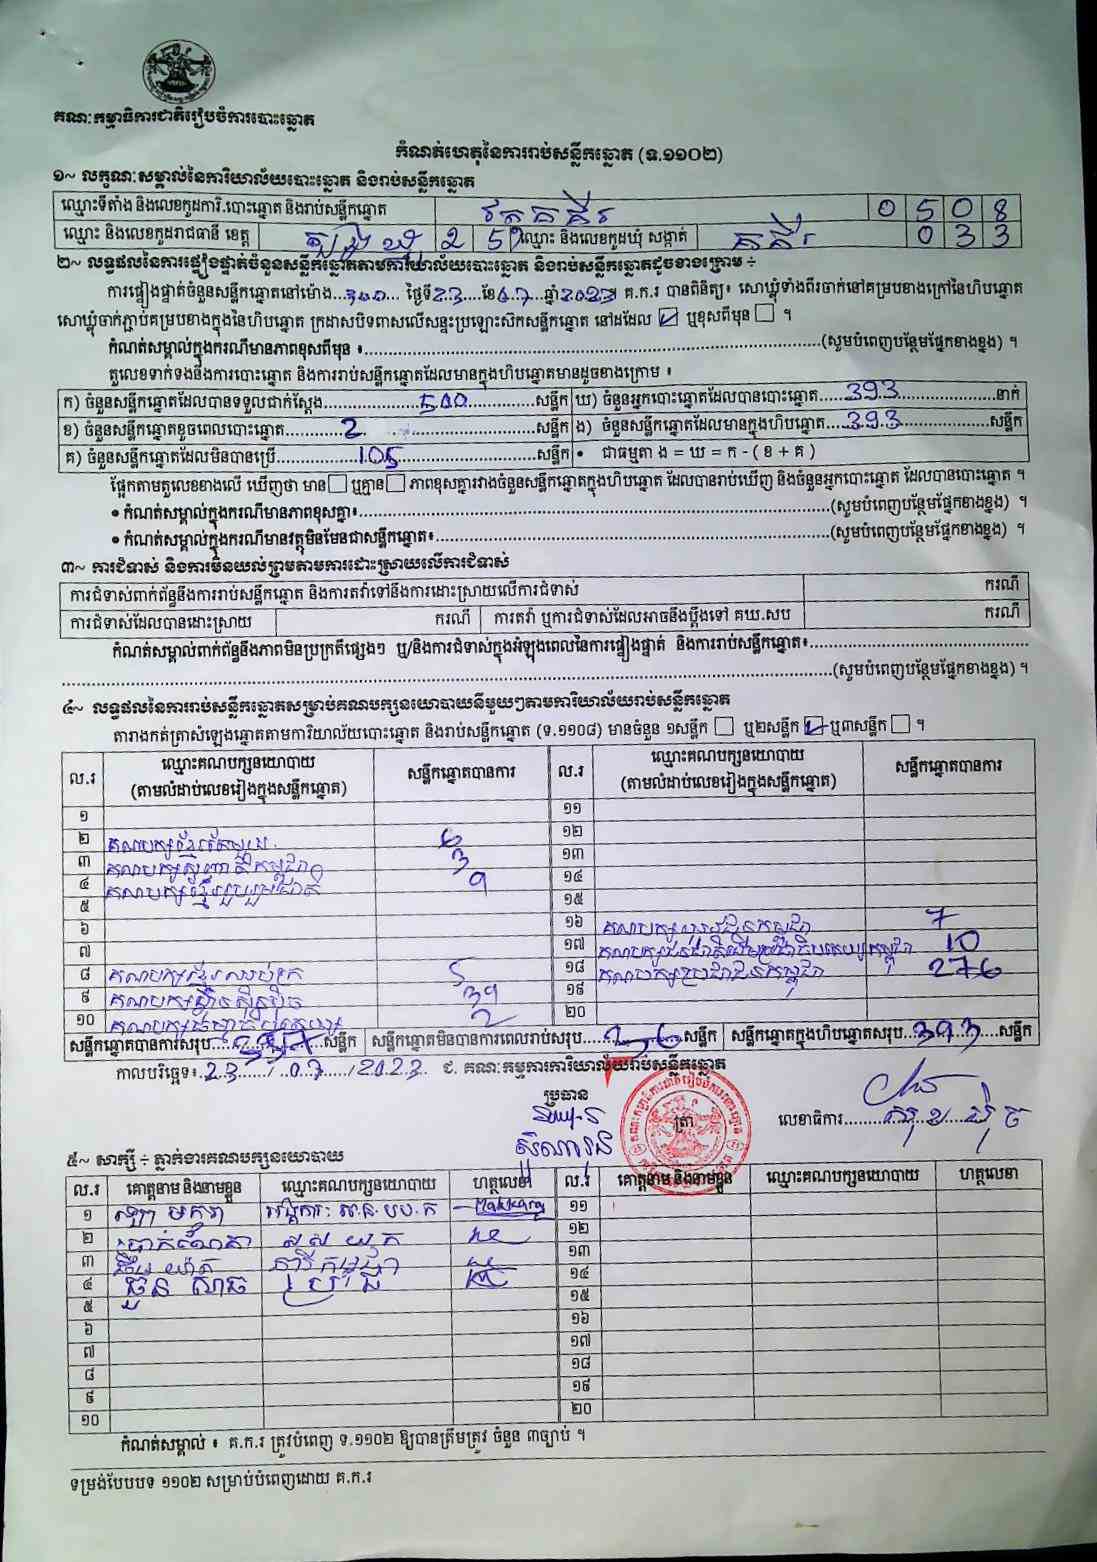 គណៈកម្មាធិការជាតិរៀបចំការបោះឆ្នោត
កំណត់ហេតុនៃការរាប់សន្លឹកឆ្នោត (ទ.១១០២)
១~ លក្ខណៈសម្គាល់នៃការិយាល័យបោះឆ្នោត និងរាប់សន្លឹកឆ្នោត
ឈ្មោះទីតាំង និងលេខកូដការិ.បោះឆ្នោត និងរាប់សន្លឹកឆ្នោត វត្តគគីរ 0 5 0 8
ឈ្មោះ និងលេខកូដរាជធានី ខេត្ត ត្បូងឃ្មុំ 2 5 ឈ្មោះ និងលេខកូដឃុំ សង្កាត់ គគីរ 0 3 3
២~ លទ្ធផលនៃការផ្ទៀងផ្ទាត់ចំនួនសន្លឹកឆ្នោតតាមការិយាល័យបោះឆ្នោត និងរាប់សន្លឹកឆ្នោតដូចខាងក្រោម ÷
ការផ្ទៀងផ្ទាត់ចំនួនសន្លឹកឆ្នោតនៅម៉ោង ថ្ងៃទី23 ខែ07 ឆ្នាំ2023 គ.ក.រ បានពិនិត្យ៖ សោឃ្លុំទាំងពីរចាក់នៅគម្របខាងក្រៅនៃហិបឆ្នោត
សោឃ្លុំចាក់ភ្ជាប់គម្របខាងក្នុងនៃហិបឆ្នោត ក្រដាសបិទពាសលើសន្ទះប្រឡោះសិកសន្លឹកឆ្នោត នៅដដែល ☑ ឬខុសពីមុន ☐ ។
កំណត់សម្គាល់ក្នុងករណីមានភាពខុសពីមុន ៖ (សូមបំពេញបន្ថែមផ្នែកខាងខ្នង) ។
តួលេខទាក់ទងនឹងការបោះឆ្នោត និងការរាប់សន្លឹកឆ្នោតដែលមានក្នុងហិបឆ្នោតមានដូចខាងក្រោម ៖
ក) ចំនួនសន្លឹកឆ្នោតដែលបានទទួលជាក់ស្តែង 500 សន្លឹក ឃ) ចំនួនអ្នកបោះឆ្នោតដែលបានបោះឆ្នោត 393 នាក់
ខ) ចំនួនសន្លឹកឆ្នោតខូចពេលបោះឆ្នោត 2 សន្លឹក ង) ចំនួនសន្លឹកឆ្នោតដែលមានក្នុងហិបឆ្នោត 393 សន្លឹក
គ) ចំនួនសន្លឹកឆ្នោតដែលមិនបានប្រើ 105 សន្លឹក • ជាធម្មតា ង = ឃ = ក - ( ខ + គ )
ផ្អែកតាមតួលេខខាងលើ ឃើញថា មាន ☐ ឬគ្មាន ☐ ភាពខុសគ្នារវាងចំនួនសន្លឹកឆ្នោតក្នុងហិបឆ្នោត ដែលបានរាប់ឃើញ និងចំនួនអ្នកបោះឆ្នោត ដែលបានបោះឆ្នោត ។
• កំណត់សម្គាល់ក្នុងករណីមានភាពខុសគ្នា៖ (សូមបំពេញបន្ថែមផ្នែកខាងខ្នង) ។
• កំណត់សម្គាល់ក្នុងករណីមានវត្ថុមិនមែនជាសន្លឹកឆ្នោត៖ (សូមបំពេញបន្ថែមផ្នែកខាងខ្នង) ។
៣~ ការជំទាស់ និងការមិនយល់ព្រមតាមការដោះស្រាយលើការជំទាស់
ការជំទាស់ពាក់ព័ន្ធនឹងការរាប់សន្លឹកឆ្នោត និងការតវ៉ាទៅនឹងការដោះស្រាយលើការជំទាស់ ករណី
ការជំទាស់ដែលបានដោះស្រាយ ករណី ការតវ៉ា ឬការជំទាស់ដែលអាចនឹងប្តឹងទៅ គឃ.សប ករណី
កំណត់សម្គាល់ពាក់ព័ន្ធនឹងភាពមិនប្រក្រតីផ្សេងៗ ឬ/និងការជំទាស់ក្នុងអំឡុងពេលនៃការផ្ទៀងផ្ទាត់ និងការរាប់សន្លឹកឆ្នោត៖
(សូមបំពេញបន្ថែមផ្នែកខាងខ្នង) ។
៤~ លទ្ធផលនៃការរាប់សន្លឹកឆ្នោតសម្រាប់គណបក្សនយោបាយនីមួយៗតាមការិយាល័យរាប់សន្លឹកឆ្នោត
តារាងកត់ត្រាសំឡេងឆ្នោតតាមការិយាល័យបោះឆ្នោត និងរាប់សន្លឹកឆ្នោត (ទ.១១០៨) មានចំនួន ១សន្លឹក ☐ ឬ២សន្លឹក ☑ ឬ៣សន្លឹក ☐ ។
ល.រ ឈ្មោះគណបក្សនយោបាយ សន្លឹកឆ្នោតបានការ ល.រ ឈ្មោះគណបក្សនយោបាយ សន្លឹកឆ្នោតបានការ
(តាមលំដាប់លេខរៀងក្នុងសន្លឹកឆ្នោត) (តាមលំដាប់លេខរៀងក្នុងសន្លឹកឆ្នោត)
១ ១១
២ គណបក្សខ្មែរតែមួយ 6 ១២
៣ គណបក្ស 3 ១៣
៤ គណបក្សខ្មែររួបរួមជាតិ 9 ១៤
៥ ១៥
៦ ១៦ គណបក្សយុវជនកម្ពុជា 7
៧ ១៧ គណបក្សជនជាតិដើមប្រជាធិបតេយ្យកម្ពុជា 10
៨ គណបក្សខ្មែរឈប់ក្រ 5 ១៨ គណបក្សប្រជាជនកម្ពុជា 276
៩ គណបក្សហ៊្វុនស៊ិនប៉ិច 39 ១៩
១០ គណបក្ស 2 ២០
សន្លឹកឆ្នោតបានការសរុប 357 សន្លឹក សន្លឹកឆ្នោតមិនបានការពេលរាប់សរុប 36 សន្លឹក សន្លឹកឆ្នោតក្នុងហិបឆ្នោតសរុប 393 សន្លឹក
កាលបរិច្ឆេទ៖ 23 / 07 / 2023 ជ. គណៈកម្មការការិយាល័យរាប់សន្លឹកឆ្នោត
ប្រធាន
ត្រា
លេខាធិការ
៥~ សាក្សី ÷ ភ្នាក់ងារគណបក្សនយោបាយ
ល.រ គោត្តនាម និងនាមខ្លួន ឈ្មោះគណបក្សនយោបាយ ហត្ថលេខា ល.រ គោត្តនាម និងនាមខ្លួន ឈ្មោះគណបក្សនយោបាយ ហត្ថលេខា
១ ១១
២ ១២
៣ ១៣
៤ ១៤
៥ ១៥
៦ ១៦
៧ ១៧
៨ ១៨
៩ ១៩
១០ ២០
កំណត់សម្គាល់ ៖ គ.ក.រ ត្រូវបំពេញ ទ.១១០២ ឱ្យបានត្រឹមត្រូវ ចំនួន ៣ច្បាប់ ។
ទម្រង់បែបបទ ១១០២ សម្រាប់បំពេញដោយ គ.ក.រ